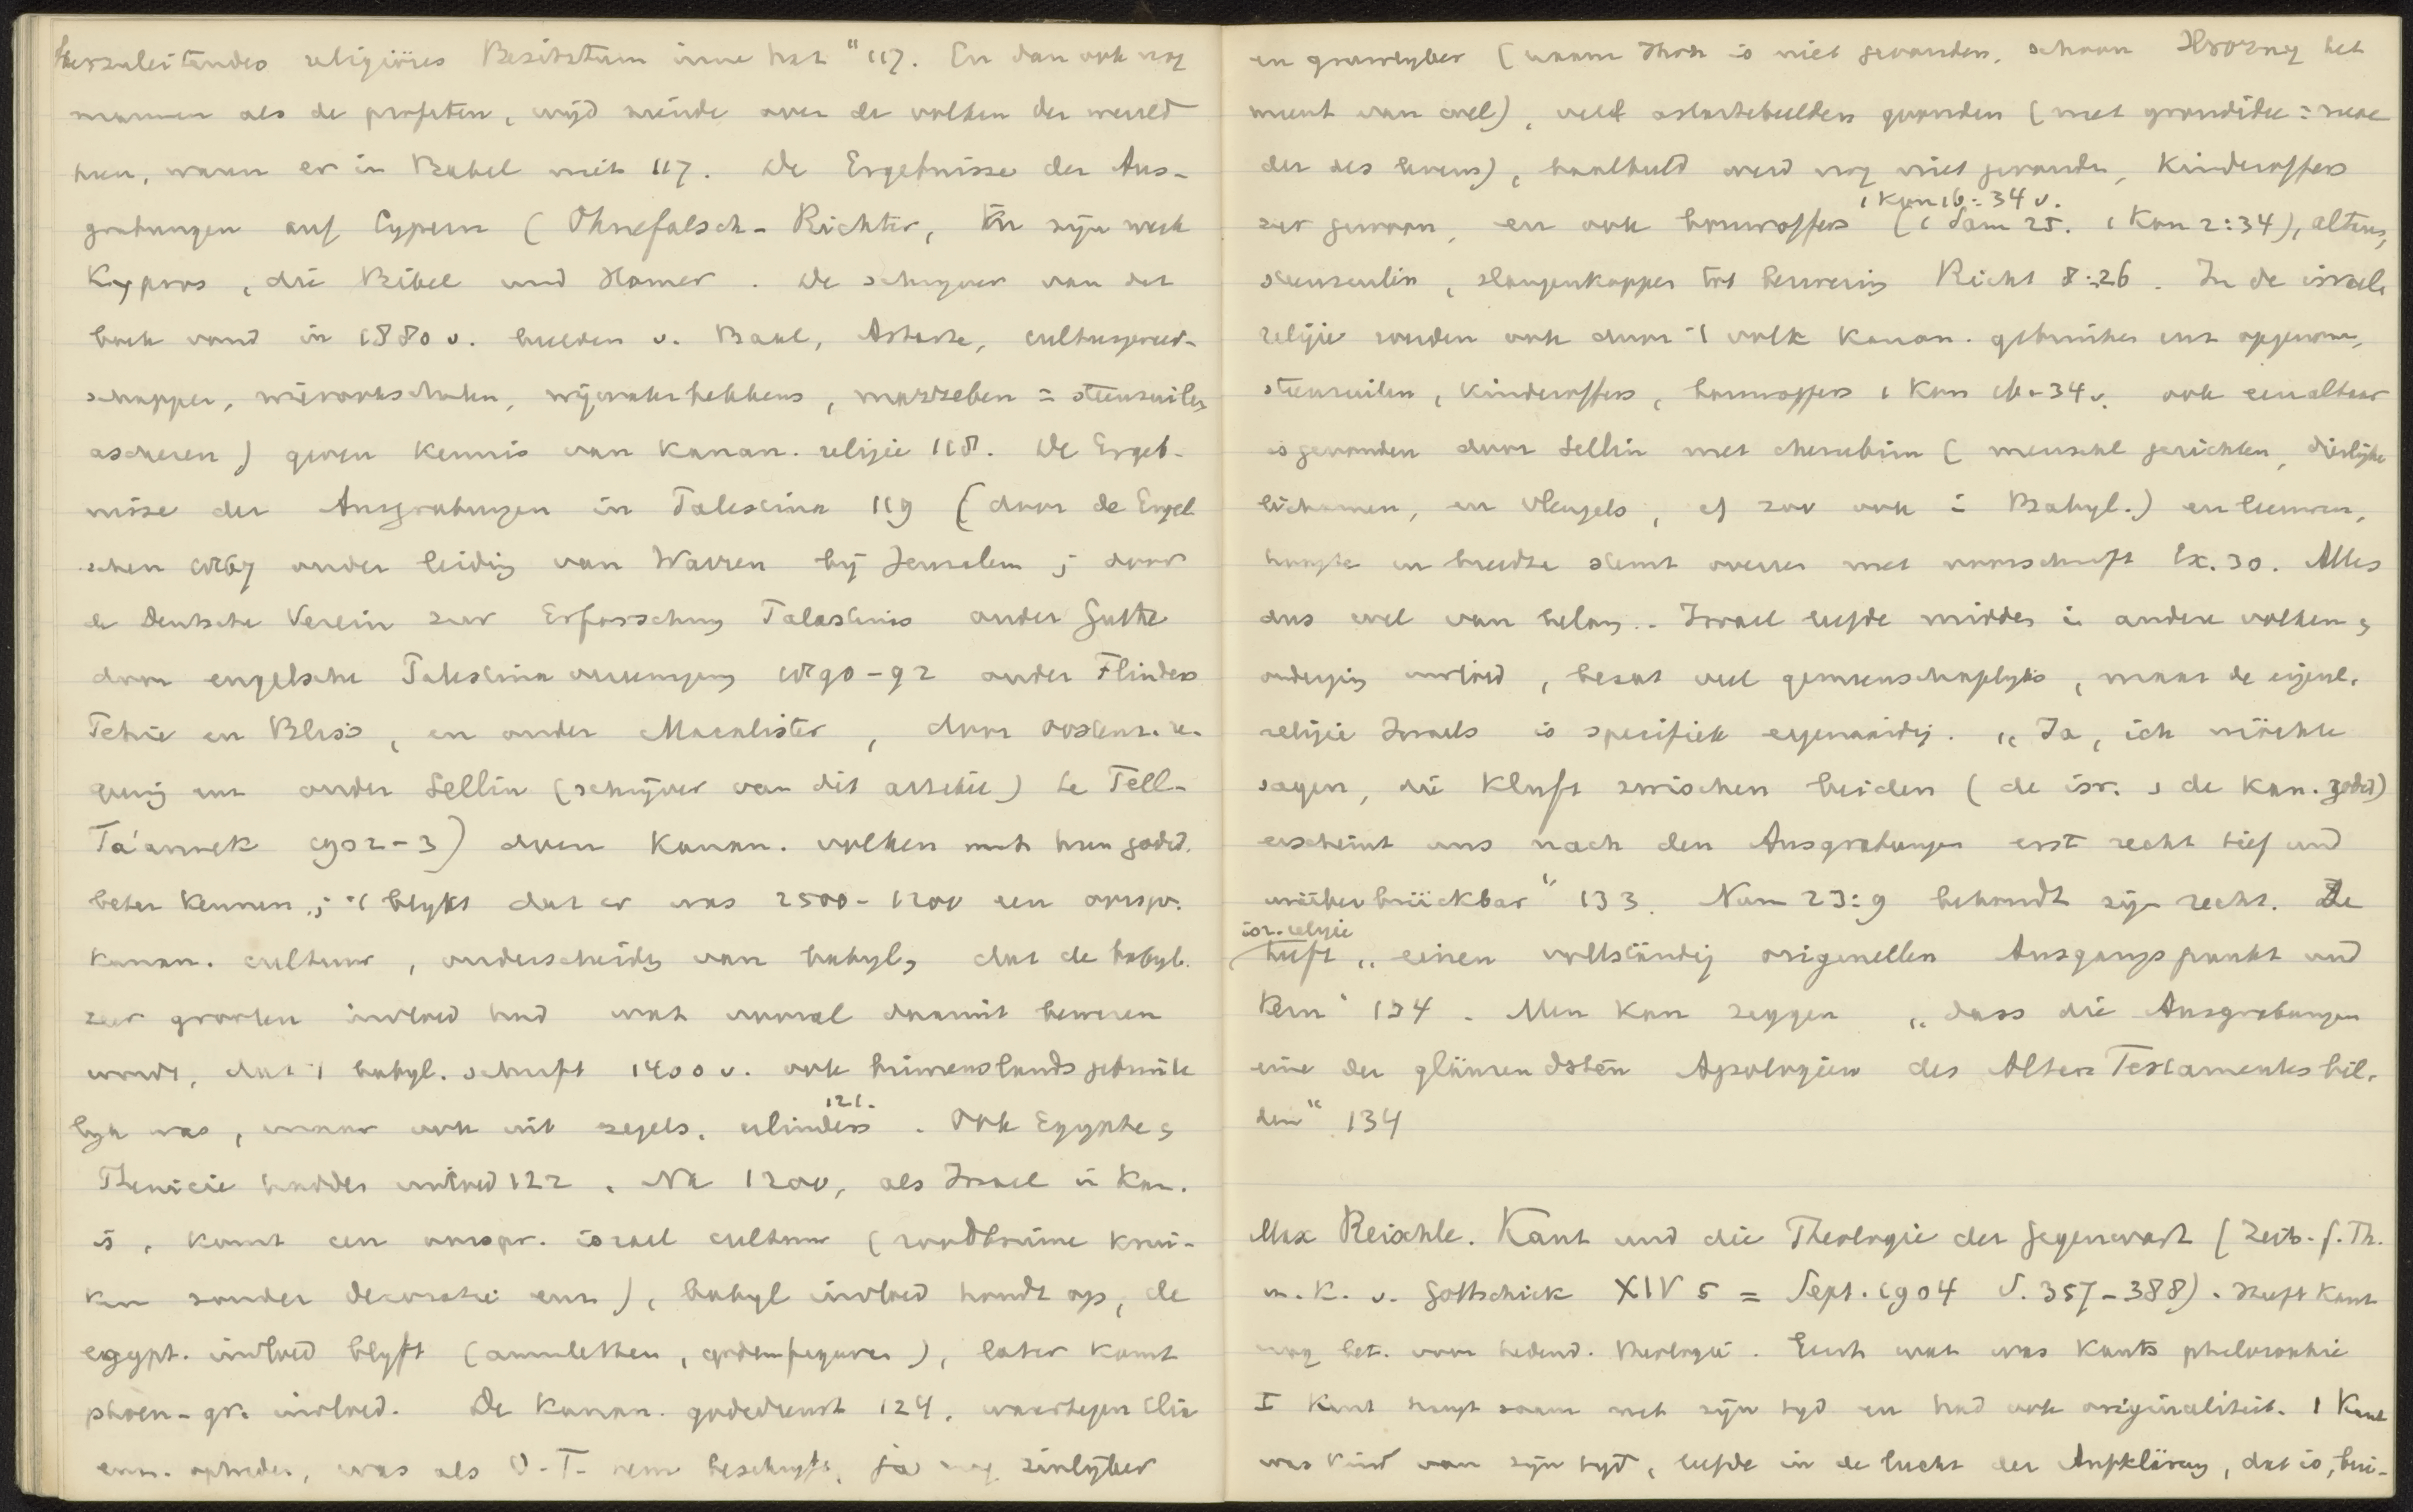 herzuleitendes religiöses Besitztum inne hat" 117. En dan ook nog
mannen als de profeten, wijd ziende over de volken der wereld
hun, waren er in Babel niet 117. De Ergebnisse der Aus-
grabungen auf Cypern (Ohnefalsch-Richter, in zijn werk
Kypros, die Bibel und Homer. De schrijver van dat
boek vond in 1880 v. beelden v. Baal, Astarte, cultusgereed-
schappen, wierookschalen, wijwaterbekkens, mazzeben = steenzuilen,
ascheren) geven kennis van Kanan. religie 118. De Ergeb-
nisse der Ausgrabungen in Palestina 119 (door de Engel
schen 1867 onder leiding van Warren bij Jeruzalem; door
de Deutsche Verein zur Erforschung Palastinas onder Guthe
door engelsche Palestina vereeniging 1890-92 onder Flinders
Petrie en Bliss, en onder Macalister, door oostenr. re-
geering enz onder Sellin (schrijver van dit artikel) te Tell-
Ta'annek 1902-3) doen Kanan. volken met hun godsd.
beter kennen; 't blijkt dat er was 2500-1200 een oorspr.
Kanan. cultuur, onderscheiden van babyl, dat de babyl.
zeer grooten invloed had wat vooral daarmit bewezen
wordt, dat 't babyl. schrift 1400 v. ook binnenslands gebruike
lijk was, maar ook uit zegels, cilinders 121. Ook Egypte &
Phenicie hadden invloed 122. Na 1200, als Israel in Kan.
is, komt een oorspr. israel cultuur (roodbruine krui-
ken zonder decoratie enz), babyl invloed houdt op, de
egypt. invloed blijft (amuletten, godenfiguren), later komt
phoen-gr. invloed. De Kanan. godsdienst 124, waartegen Elia
enz. optreden, was als O.T. hem beschrijft, ja nog zinlijker
en gruwlijker (naam Jhvh is niet gevonden, schoon Hrozny het
meent van wel), veel astartebeelden gevonden (met grondidee = moe
der des levens), baalbeeld werd nog niet gevonden, Kinderoffers
zeer gewoon, en ook bouwoffers (1 Sam 25. 1 Kon 2:34), altaren, 1 Kon 16:34 v.
steenzuilen, slangenkoppen tot bezwering Richt 8:26. In de israel
religie worden ook door 't volk Kanan. gebruiken enz opgenomen,
steenzuilen, Kinderoffers, bouwoffers 1 Kon 16-34 v. ook een altaar
is gevonden door Sellin met cherubim (menschl gezichten, dierlijke
lichamen, en vleugels, ef zoo ook in Babyl.) en leeuwen,
hoogte en breedte stemt overeen met voorschrift Ex. 30. Alles
dus wel van belang. Israel leefde midden in andere volken &
onderging invloed, bezat veel gemeenschaplijks, maar de eigenl.
religie Israels is specifiek eigenaardig. „Ja, ich möchte
sagen, die Kluft zwischen beiden (de isr. & de kan. godsd)
erscheint uns nach den Ausgrabungen erst recht tief und
unüberbrückbar" 133. Num 23:9 behoudt zijn recht. De
isr. religie
heeft „einen vollständig originellen Ausgangspunkt und
Kern" 134. Men kan zeggen „dass die Ausgrabungen
eine der glänzendsten Apologien des Alten Testaments bil-
den" 134
Max Reischle. Kant und die Theologie der Gegenwart (Zeits. f. Th.
u. K. v. Gottschick XIV 5 = Sept. 1904 S. 357-388). Heeft Kant
nog bet. voor hedend. theologie. Eerst wat was Kants philosophie
I Kant hangt saam met zijn tijd en had ook originaliteit. 1 Kant
was kind van zijn tijd, leefde in de lucht der Aufklärung, dat is, bui-